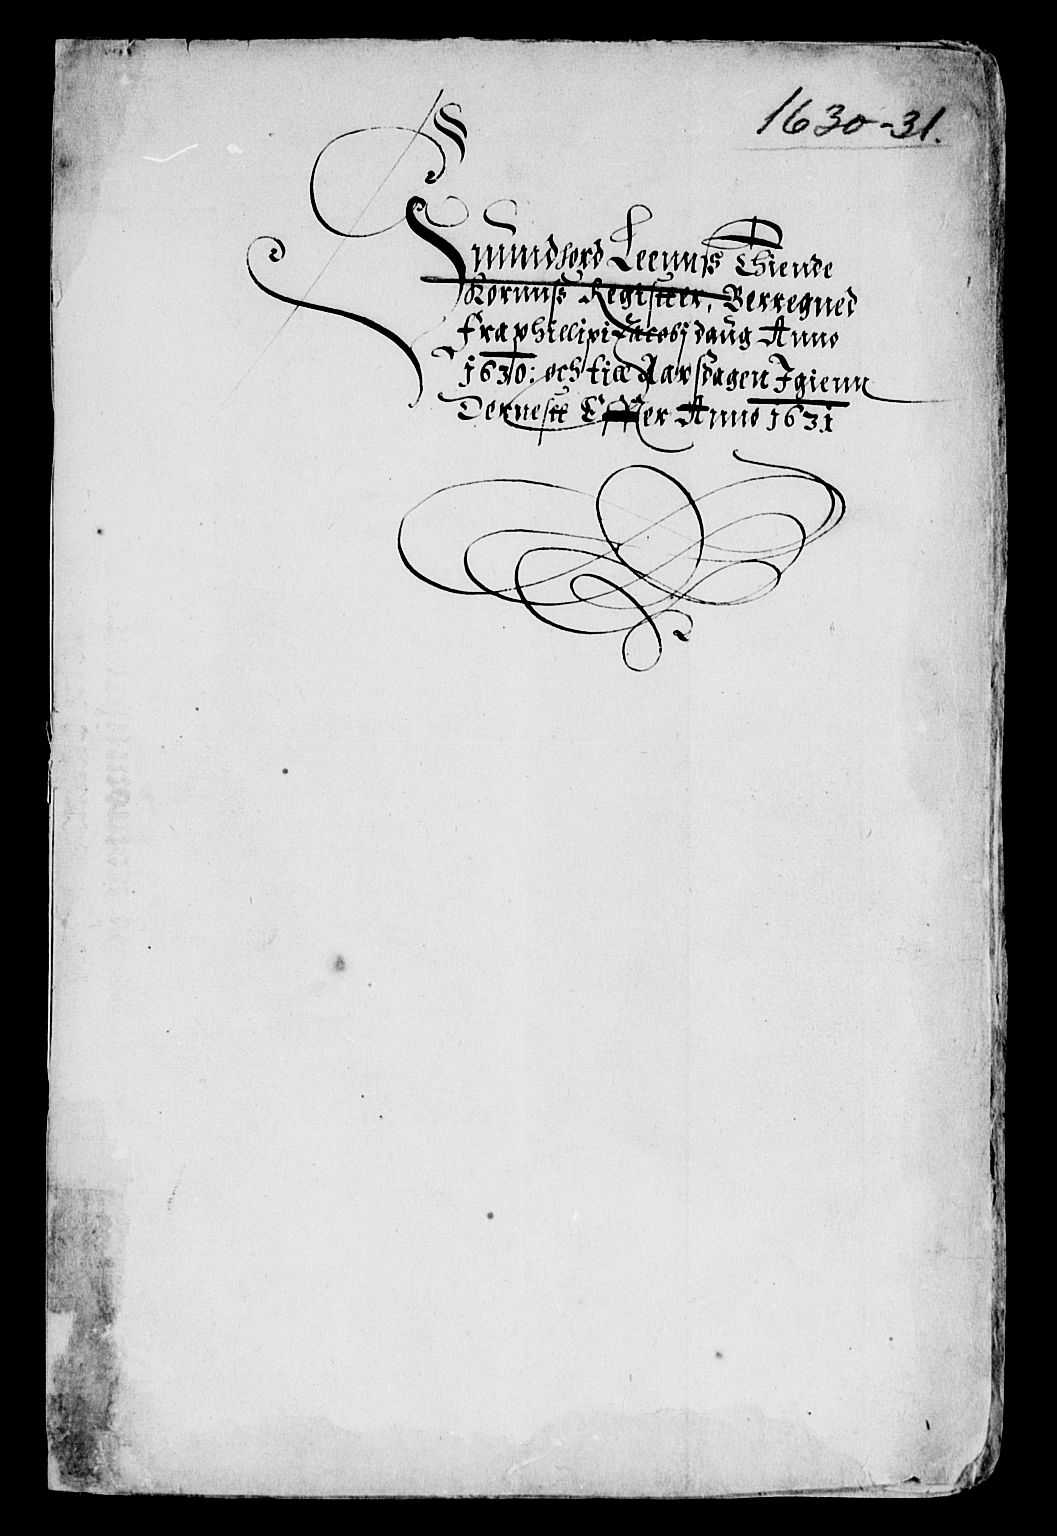 1630-31.
Smundhord Leennß Thiende
Kornnß Registter, Berregned
fra phillipi Jacobj daug Anno
1630: och till Aarsdagen Igienn
Dernestt Effter Anno 1631